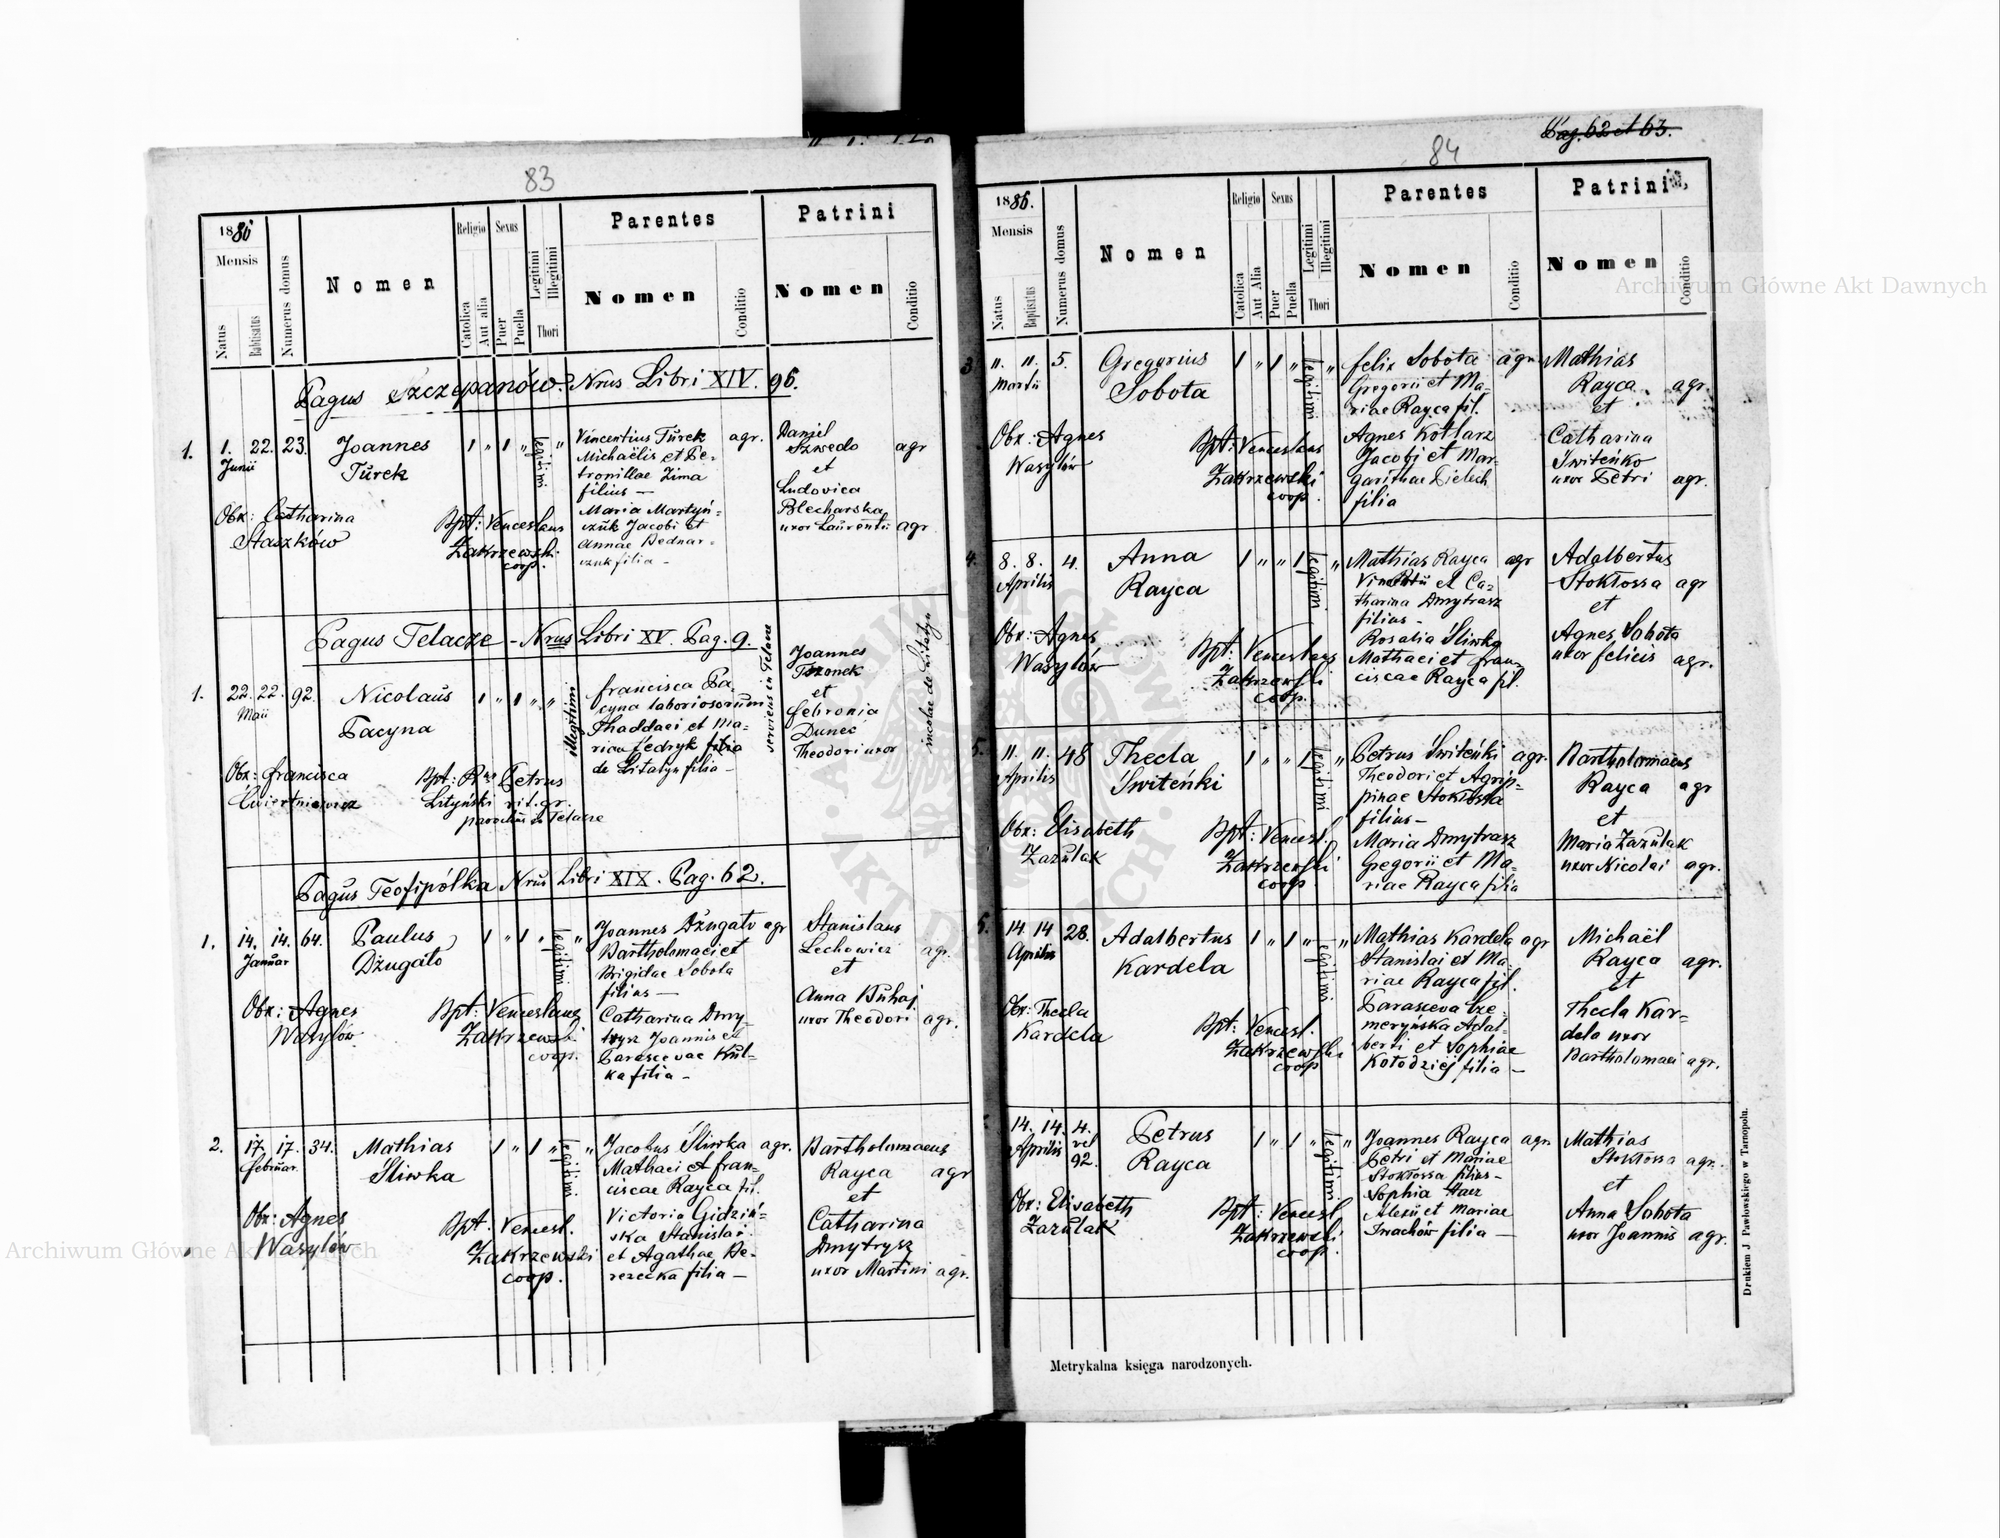 83
1886
Mensis
Natus
Babtisatus
Numerus domus
Nomen
Religio
Catolica
Aut alia
Sexus
Puer
Puella
Legitimi
Illegitimi
Thori
Parentes
Nomen
Conditio
Patrini
Nomen
Conditio
Pagus Szczepanów. Nrus Libri XIV. 96.
1. 1. 22. 23.
Junii
Joannes
Turek
1 " 1 " legitimi "
Vincentius Turek agr.
Michaëlis et Pe-
tronillae Zima
filius —
Maria Martyń-
czuk Jacobi et
Annae Bednar-
czuk filia —
Daniel
Szwedo agr
et
Ludovica
Blecharska
uxor Laurentii agr
Obx: Catharina
Staszków
Bpt: Venceslaus
Zakrzewski
coop.
Pagus Telacze - Nrus Libri XV. Pag. 9.
1. 22. 22. 92.
Maii
Nicolaus
Pacyna
1 " 1 " " illegitimi
Francisca Pa-
cyna laboriosorum
Thaddaei et Ma-
riae Fedryk filia
de Litatyn filia —
serviens in Telacze
Joannes
et
Febronia
Duneć
Theodori uxor
incolae de Litatyn
Obx: Francisca
Ćwiertniewicz
Bpt: Rnus Petrus
Lityński rit. gr.
parochus in Telacze
Pagus Teofipólka Nrus Libri XIX. Pag. 62.
1. 14. 14. 64.
Januar
Paulus
Dżugało
1 " 1 " legitimi "
Joannes Dżugało agr
Bartholomaei et
Brigidae Sobota
filius —
Catharina Dmy-
trysz Joannis et
Parascevae Kul-
ka filia —
Stanislaus
Lechowicz agr.
et
Anna Buhaj
uxor Theodori agr.
Obx: Agnes
Wasylów
Bpt: Venceslaus
Zakrzewski
coop.
2. 17. 17. 34.
Februar.
Mathias
Śliwka
1 " 1 " legitimi "
Jacobus Śliwka agr.
Mathaei et Fran-
ciscae Rayca fil.
Victoria Gidziń-
ska Stanislai
et Agathae Be-
rezecka filia —
Bartholomaeus
Rayca agr
et
Catharina
Dmytrysz
uxor Martini agr.
Obx: Agnes
Wasylów
Bpt: Vencesl.
Zakrzewski
coop.
84
Pag. 62 et 63.
1886.
Mensis
Natus
Baptisatus
Numerus domus
Nomen
Religio
Catolica
Aut Alia
Sexus
Puer
Puella
Legitimi
Illegitimi
Thori
Parentes
Nomen
Conditio
Patrini
Nomen
Conditio
3 11. 11. 5.
Martii
Gregorius
Sobota
1 " 1 " legitimi "
Felix Sobota agr
Gregorii et Ma-
riae Rayca fil.
Agnes Kotlarz
Jacobi et Mar-
garithae Bielech
filia
Mathias
Rayca agr.
et
Catharina
Świteńko
uxor Petri agr.
Obx: Agnes
Wasylów
Bpt: Venceslaus
Zakrzewski
coop.
4. 8. 8. 4.
Aprilis
Anna
Rayca
1 " " 1 legitimi "
Mathias Rayca agr
Vincentii et Ca-
tharina Dmytrasz
filius —
Rosalia Śliwka
Mathaei et Fran-
ciscae Rayca fil.
Adalbertus
Stokłossa agr
et
Agnes Sobota
uxor Felicis agr.
Obx: Agnes
Wasylów
Bpt: Venceslaus
Zakrzewski
coop.
5. 11. 11. 48
Aprilis
Thecla
Świteńki
1 " " 1 legitimi "
Petrus Świteńki agr.
Theodori et Agrip-
pinae Stokłossa
filius —
Maria Dmytrasz
Gregorii et Ma-
riae Rayca filia
Bartholomaeus
Rayca agr
et
Maria Zazulak
uxor Nicolai agr.
Obx: Elisabeth
Zazulak
Bpt: Vencesl.
Zakrzewski
coop.
14. 14 28.
Aprilis
Adalbertus
Kardela
1 " 1 " legitimi "
Mathias Kardela agr
Stanislai et Ma-
riae Rayca fil.
Parasceva Cze-
meryńska Adal-
berti et Sophiae
Kołodziej filia —
Michaël
Rayca agr.
et
Thecla Kar-
dela uxor
Bartholomaei agr.
Obx: Thecla
Kardela
Bpt: Vencesl.
Zakrzewski
coop
14. 14. 4.
Aprilis vel
92.
Petrus
Rayca
1 " 1 " legitimi "
Joannes Rayca agr.
Petri et Mariae
Stokłossa filius —
Sophia
Alexii et Mariae
Iwachów filia —
Mathias
Stokłossa agr.
et
Anna Sobota
uxor Joannis agr.
Obx: Elisabeth
Zazulak
Bpt: Vencesl.
Zakrzewski
coop.
Metrykalna księga narodzonych.
Drukiem J Pawłowskiego w Tarnopolu.
Archiwum Główne Akt Dawnych
Archiwum Główne Akt Dawnych
ARCHIWUM GŁÓWNE AKT DAWNYCH